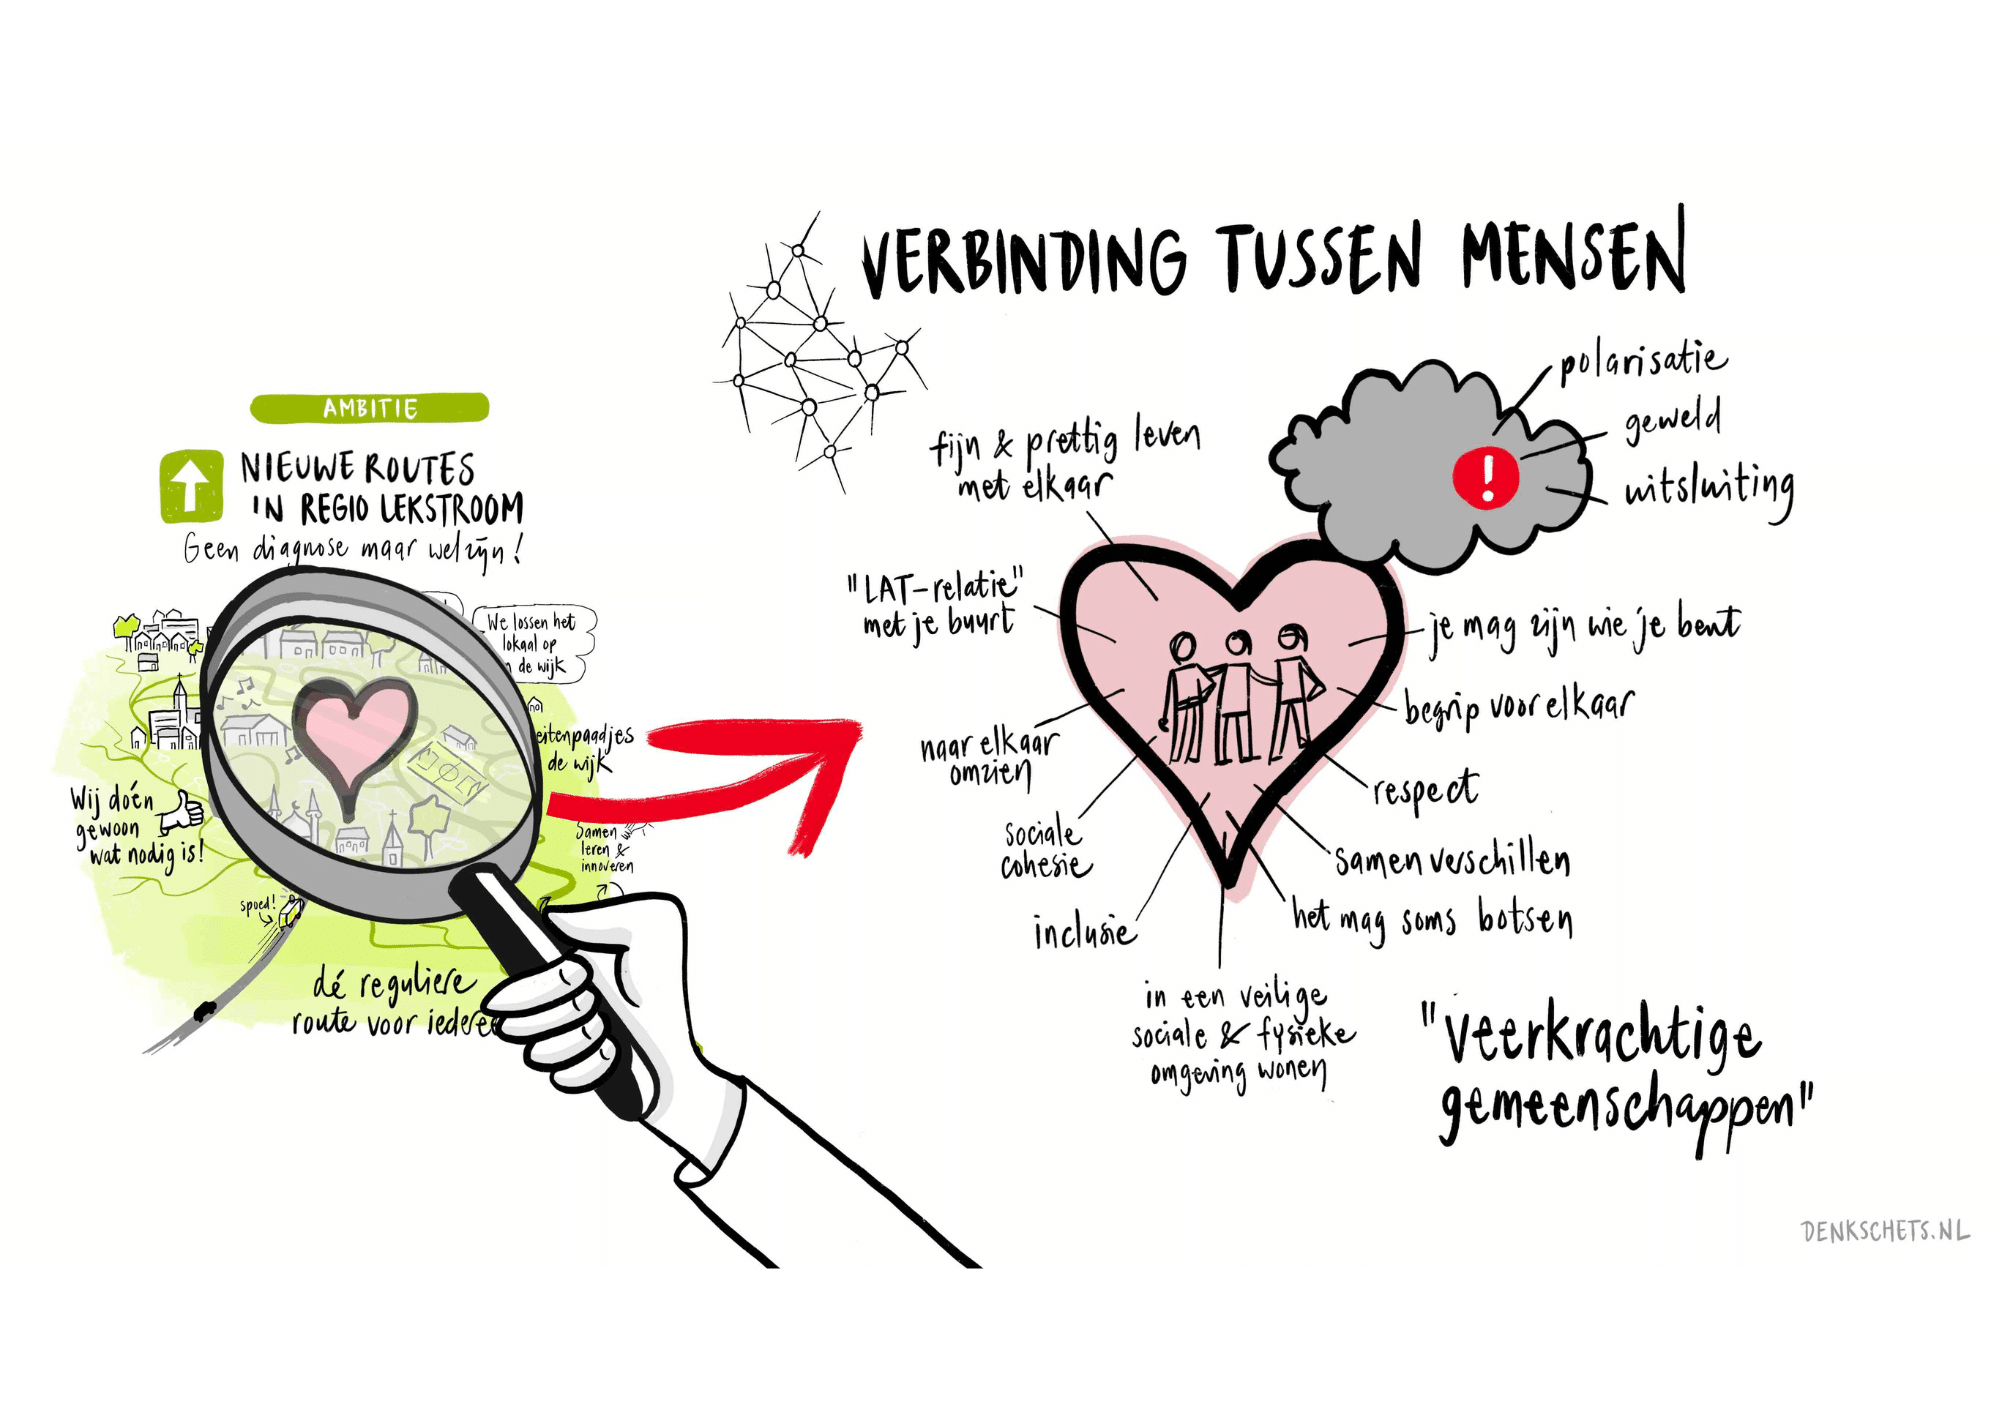 VERBINDING TUSSEN MENSEN
AMBITIE
NIEUWE ROUTES
IN REGIO LEKSTROOM
Geen diagnose maar welzijn!
We lossen het
lokaal op
de wijk
eitenpaadjes
de wijk
Wij doén
gewoon
wat nodig is!
Samen
leren &
innoveren
spoed!
dé reguliere
route voor iedere
polarisatie
geweld
uitsluiting
!
fijn & prettig leven
met elkaar
"LAT-relatie"
met je buurt
naar elkaar
omzien
sociale
cohesie
inclusie
in een veilige
sociale & fysieke
omgeving wonen
je mag zijn wie je bent
begrip voor elkaar
respect
samen verschillen
het mag soms botsen
"veerkrachtige
gemeenschappen"
DENKSCHETS.NL